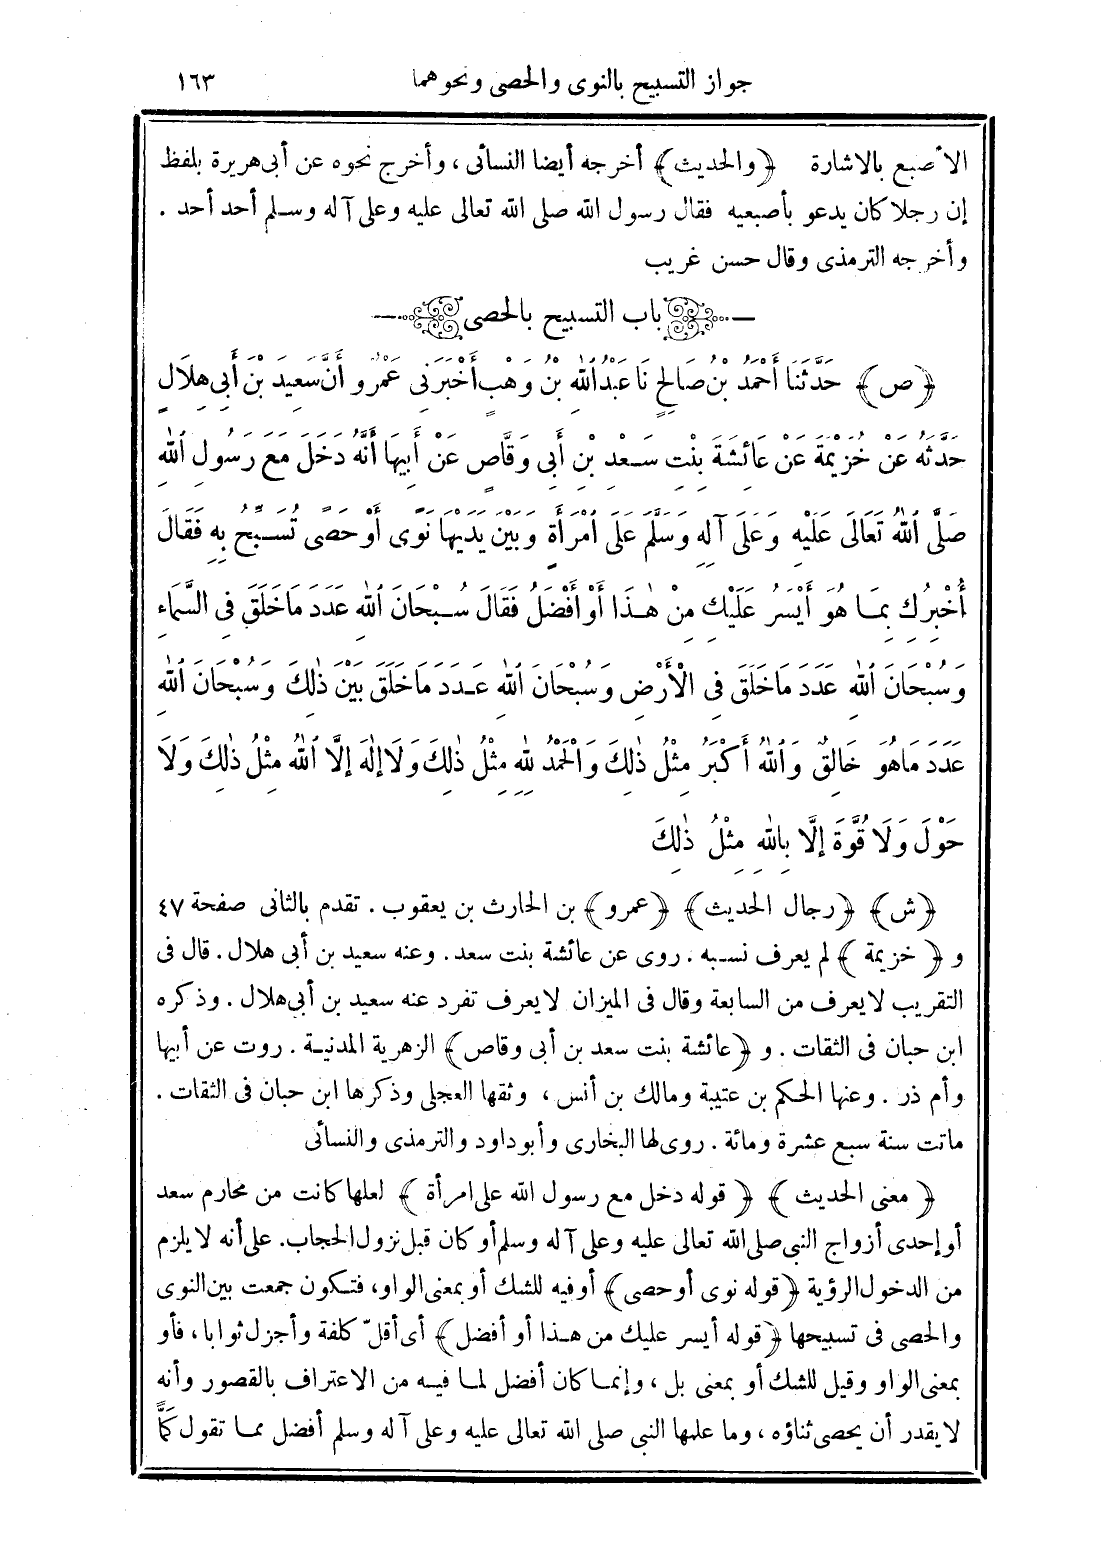 جواز التسبيح بالنوى والحصى ونحوهما ١٦٣
الأصبع بالاشارة ﴿والحديث﴾ أخرجه أيضا النسائى، وأخرج نحوه عن أبى هريرة بلفظ
إن رجلا كان يدعو بأصبعيه فقال رسول الله صلى الله تعالى عليه وعلى آله وسلم أحد أحد.
وأخرجه الترمذى وقال حسن غريب
باب التسبيح بالحصى
﴿ص﴾ حَدَّثَنَا أَحْمَدُ بْنُ صَالِحٍ نَا عَبْدُ اللهِ بْنُ وَهْبٍ أَخْبَرَنِى عَمْرٌو أَنَّ سَعِيدَ بْنَ أَبِى هِلَالٍ
حَدَّثَهُ عَنْ خُزَيْمَةَ عَنْ عَائِشَةَ بِنْتِ سَعْدِ بْنِ أَبِى وَقَّاصٍ عَنْ أَبِيهَا أَنَّهُ دَخَلَ مَعَ رَسُولِ اللهِ
صَلَّى اللهُ تَعَالَى عَلَيْهِ وَعَلَى آلِهِ وَسَلَّمَ عَلَى امْرَأَةٍ وَبَيْنَ يَدَيْهَا نَوًى أَوْ حَصًى تُسَبِّحُ بِهِ فَقَالَ
أُخْبِرُكِ بِمَا هُوَ أَيْسَرُ عَلَيْكِ مِنْ هٰذَا أَوْ أَفْضَلُ فَقَالَ سُبْحَانَ اللهِ عَدَدَ مَا خَلَقَ فِى السَّمَاءِ
وَسُبْحَانَ اللهِ عَدَدَ مَا خَلَقَ فِى الْأَرْضِ وَسُبْحَانَ اللهِ عَدَدَ مَا خَلَقَ بَيْنَ ذٰلِكَ وَسُبْحَانَ اللهِ
عَدَدَ مَا هُوَ خَالِقٌ وَاللهُ أَكْبَرُ مِثْلُ ذٰلِكَ وَالْحَمْدُ لِلهِ مِثْلُ ذٰلِكَ وَلَا إِلٰهَ إِلَّا اللهُ مِثْلُ ذٰلِكَ وَلَا
حَوْلَ وَلَا قُوَّةَ إِلَّا بِاللهِ مِثْلُ ذٰلِكَ
﴿ش﴾ ﴿رجال الحديث﴾ ﴿عمرو﴾ بن الحارث بن يعقوب. تقدم بالثانى صفحة ٤٧
و ﴿خزيمة﴾ لم يعرف نسبه. روى عن عائشة بنت سعد. وعنه سعيد بن أبى هلال. قال فى
التقريب لا يعرف من السابعة وقال فى الميزان لا يعرف تفرد عنه سعيد بن أبى هلال. وذكره
ابن حبان فى الثقات. و ﴿عائشة بنت سعد بن أبى وقاص﴾ الزهرية المدنية. روت عن أبيها
وأم ذر. وعنها الحكم بن عتيبة ومالك بن أنس، وثقها العجلى وذكرها ابن حبان فى الثقات.
ماتت سنة سبع عشرة ومائة. روى لها البخارى وأبوداود والترمذى والنسائى
﴿معنى الحديث﴾ ﴿قوله دخل مع رسول الله على امرأة﴾ لعلها كانت من محارم سعد
أو إحدى أزواج النبى صلى الله تعالى عليه وعلى آله وسلم أو كان قبل نزول الحجاب. على أنه لا يلزم
من الدخول الرؤية ﴿قوله نوى أو حصى﴾ أو فيه للشك أو بمعنى الواو، فتكون جمعت بين النوى
والحصى فى تسبيحها ﴿قوله أيسر عليك من هذا أو أفضل﴾ أى أقلّ كلفة وأجزل ثوابا، فأو
بمعنى الواو وقيل للشك أو بمعنى بل، وإنما كان أفضل لما فيه من الاعتراف بالقصور وأنه
لا يقدر أن يحصى ثناؤه، وما علمها النبى صلى الله تعالى عليه وعلى آله وسلم أفضل مما تقول كمًّا